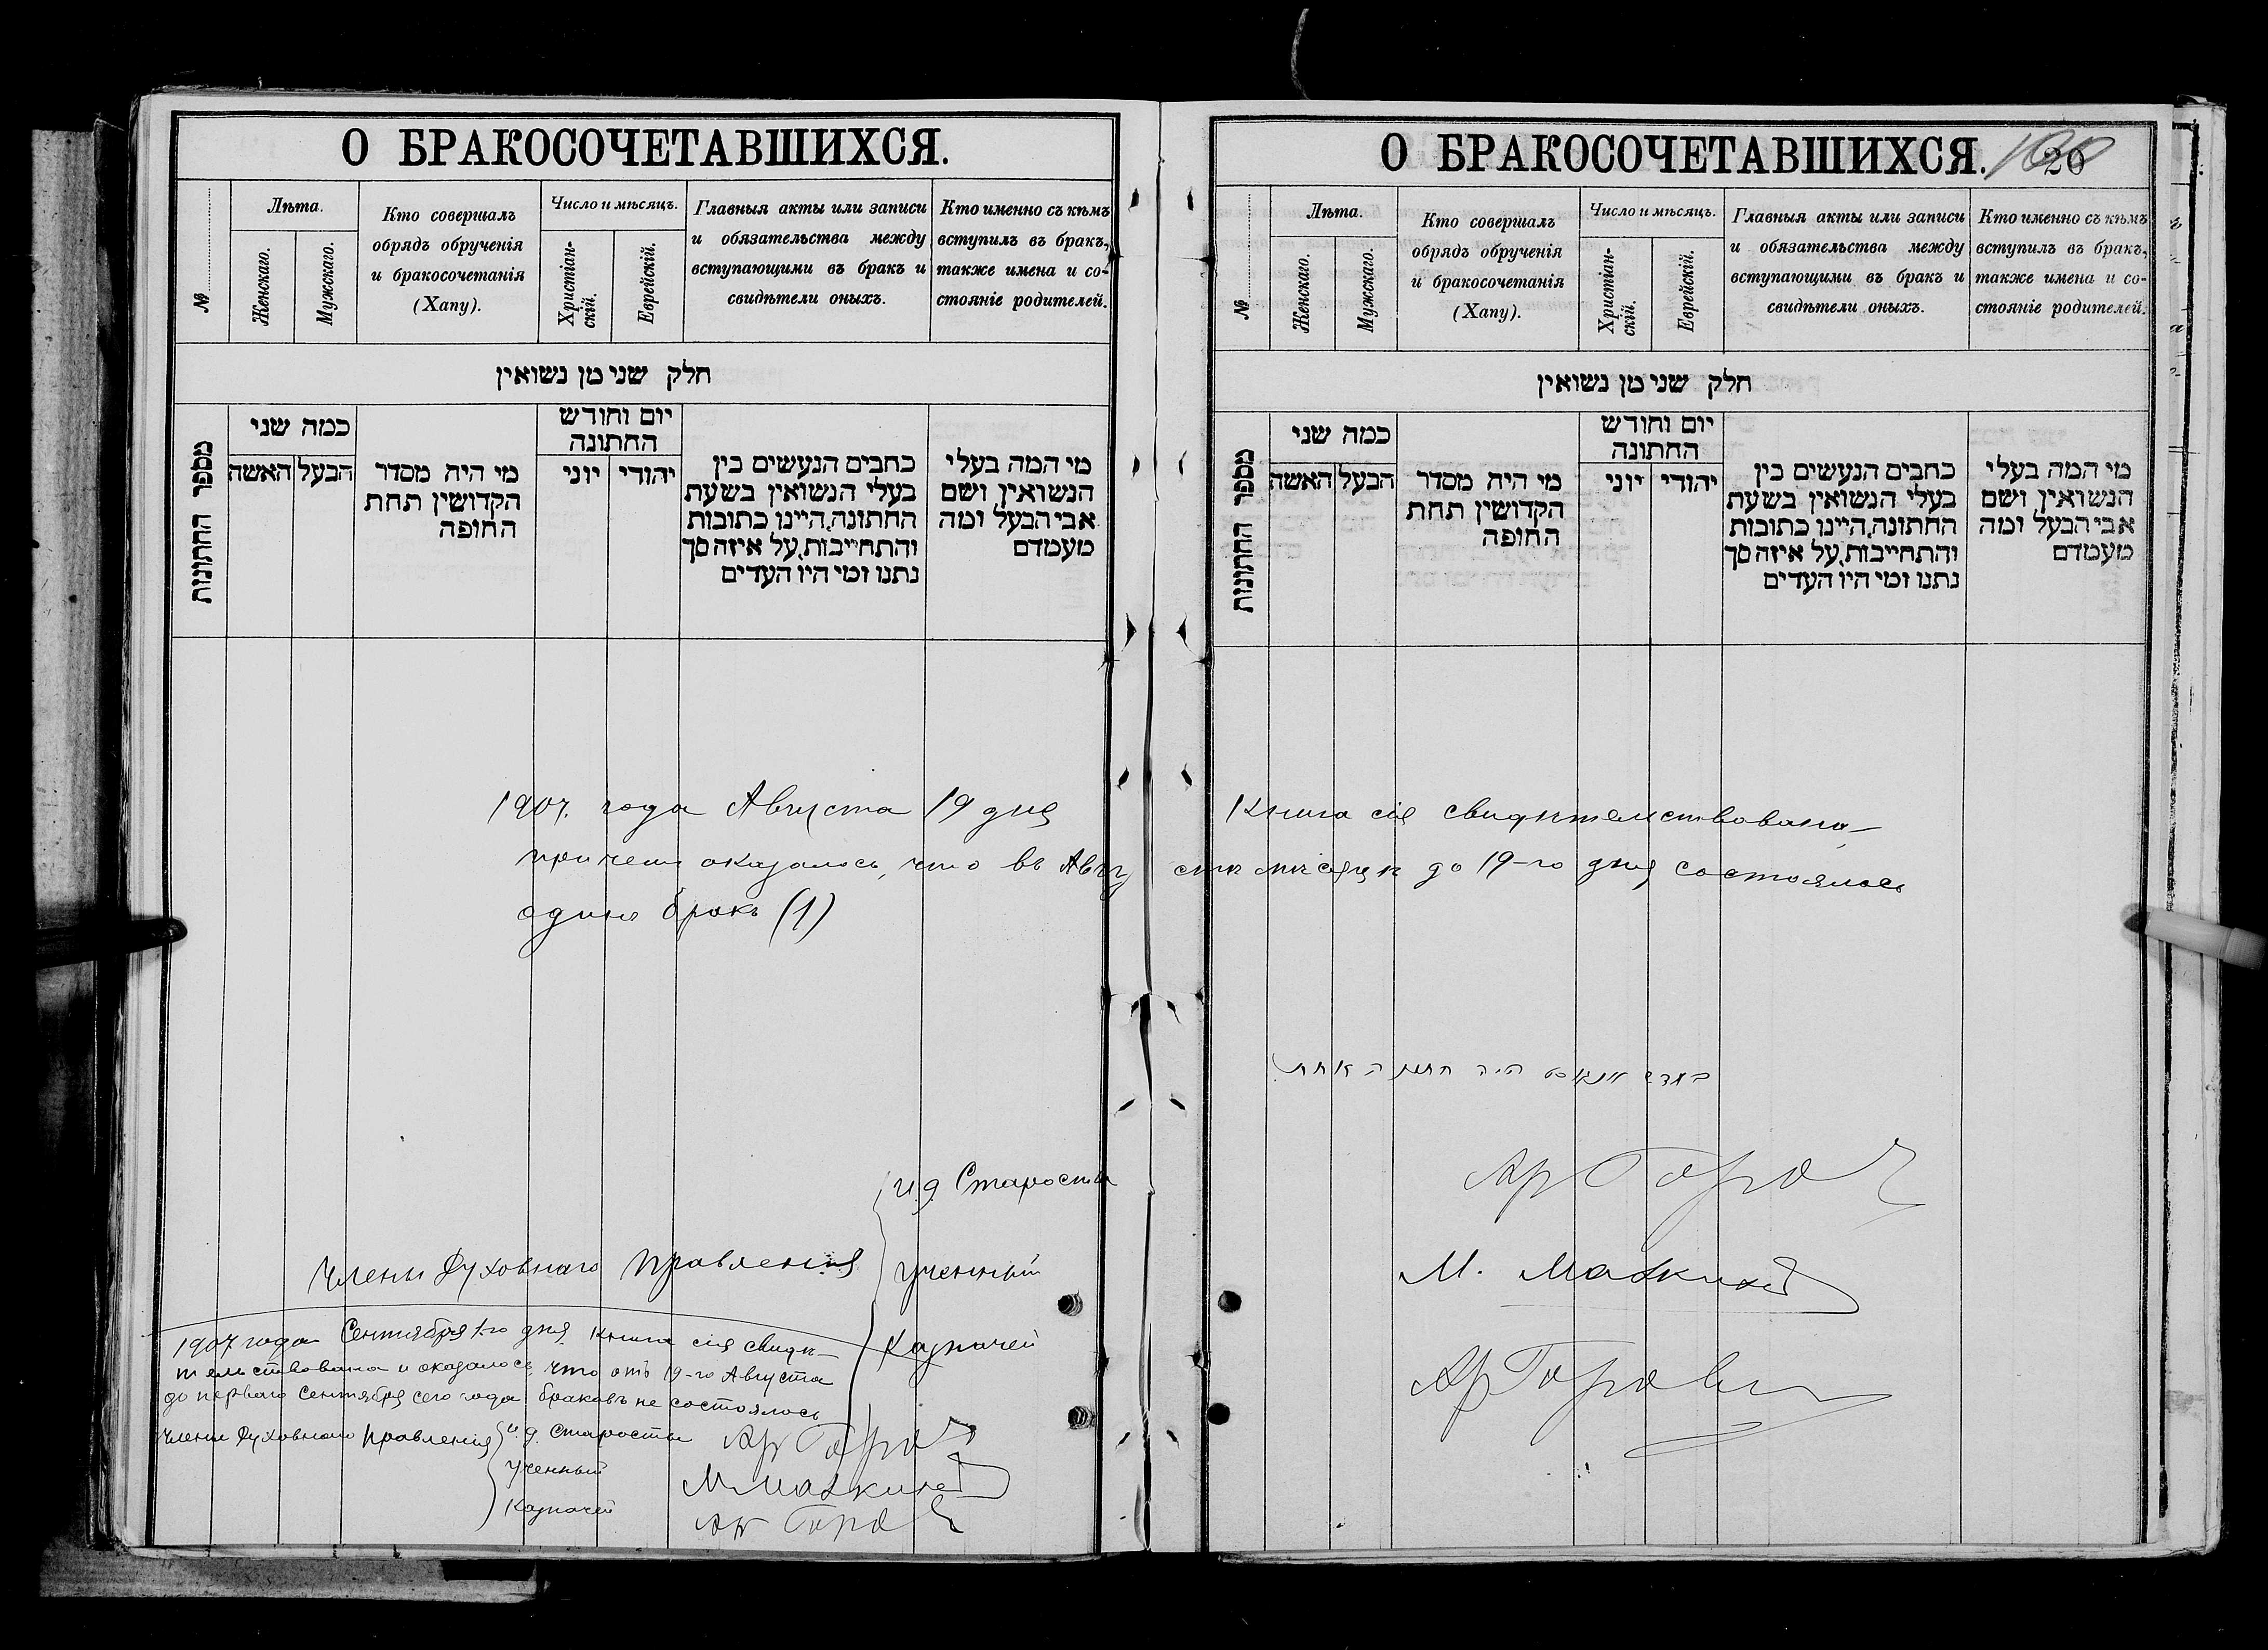 О БРАКОСОЧЕТАВШИХСЯ.
№
Лѣта.
Женскаго.
Мужскаго.
Кто совершалъ
обрядъ обрученія
и бракосочетанія
(Хапу).
Число и мѣсяцъ.
Христіан-
скій.
Еврейскій.
Главныя акты или записи
и обязательства между
вступающими въ бракъ и
свидѣтели оныхъ.
Кто именно съ кѣмъ
вступилъ въ бракъ,
также имена и со-
стояніе родителей.
חלק שני מן נשואין
מספר החתונות
כמה שני
האשה
הבעל
מי היה מסדר
הקדושין תחת
החופה
יום וחודש
החתונה
יוני
יהודי
כתבים הנעשים בין
בעלי הנשואין בשעת
החתונה, היינו כתובות
והתחייבות, על איזה סך
נתנו ומי היו העדים
מי המה בעלי
הנשואין ושם
אבי הבעל ומה
מעמדם
1907. года Августа 19 дня
причемъ оказалось, что въ Авгу
одинъ бракъ (1)
Члены Духовнаго Правленія
и.д. Старосты
Ученный
Казначей
1907 года Сентября 1-го дня книга сія свидѣ-
тельствована и оказалось, что отъ 19-го Августа
до перваго Сентября сего года браковъ не состоялось
Члены Духовнаго Правленія
и.д. Старосты
Ученный
Казначей
О БРАКОСОЧЕТАВШИХСЯ.
20
№
Лѣта.
Женскаго.
Мужскаго.
Кто совершалъ
обрядъ обрученія
и бракосочетанія
(Хапу).
Число и мѣсяцъ.
Христіан-
скій.
Еврейскій.
Главныя акты или записи
и обязательства между
вступающими въ бракъ и
свидѣтели оныхъ.
Кто именно съ кѣмъ
вступилъ въ бракъ,
также имена и со-
стояніе родителей.
חלק שני מן נשואין
מספר החתונות
כמה שני
האשה
הבעל
מי היה מסדר
הקדושין תחת
החופה
יום וחודש
החתונה
יוני
יהודי
כתבים הנעשים בין
בעלי הנשואין בשעת
החתונה, היינו כתובות
והתחייבות, על איזה סך
נתנו ומי היו העדים
מי המה בעלי
הנשואין ושם
אבי הבעל ומה
מעמדם
Книга сія свидѣтельствована,
стѣ мѣсяцѣ до 19-го дня состоялось
היה חתונה אחת
М.